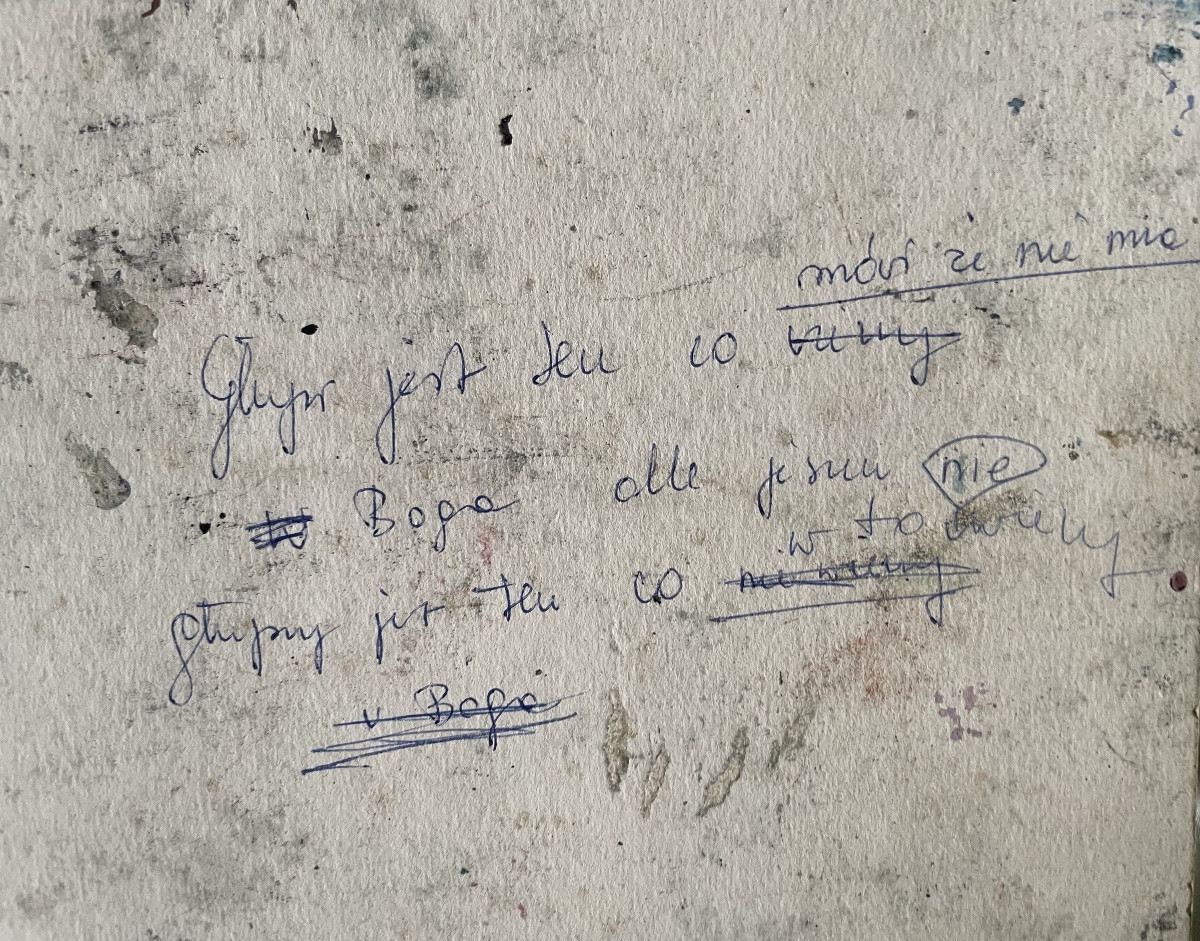 mówi że nie ma
Głupi jest ten co wierzy
w Boga ale jeszcze nie
w to wierzy
głupszy jest ten co nie wierzy
w Boga